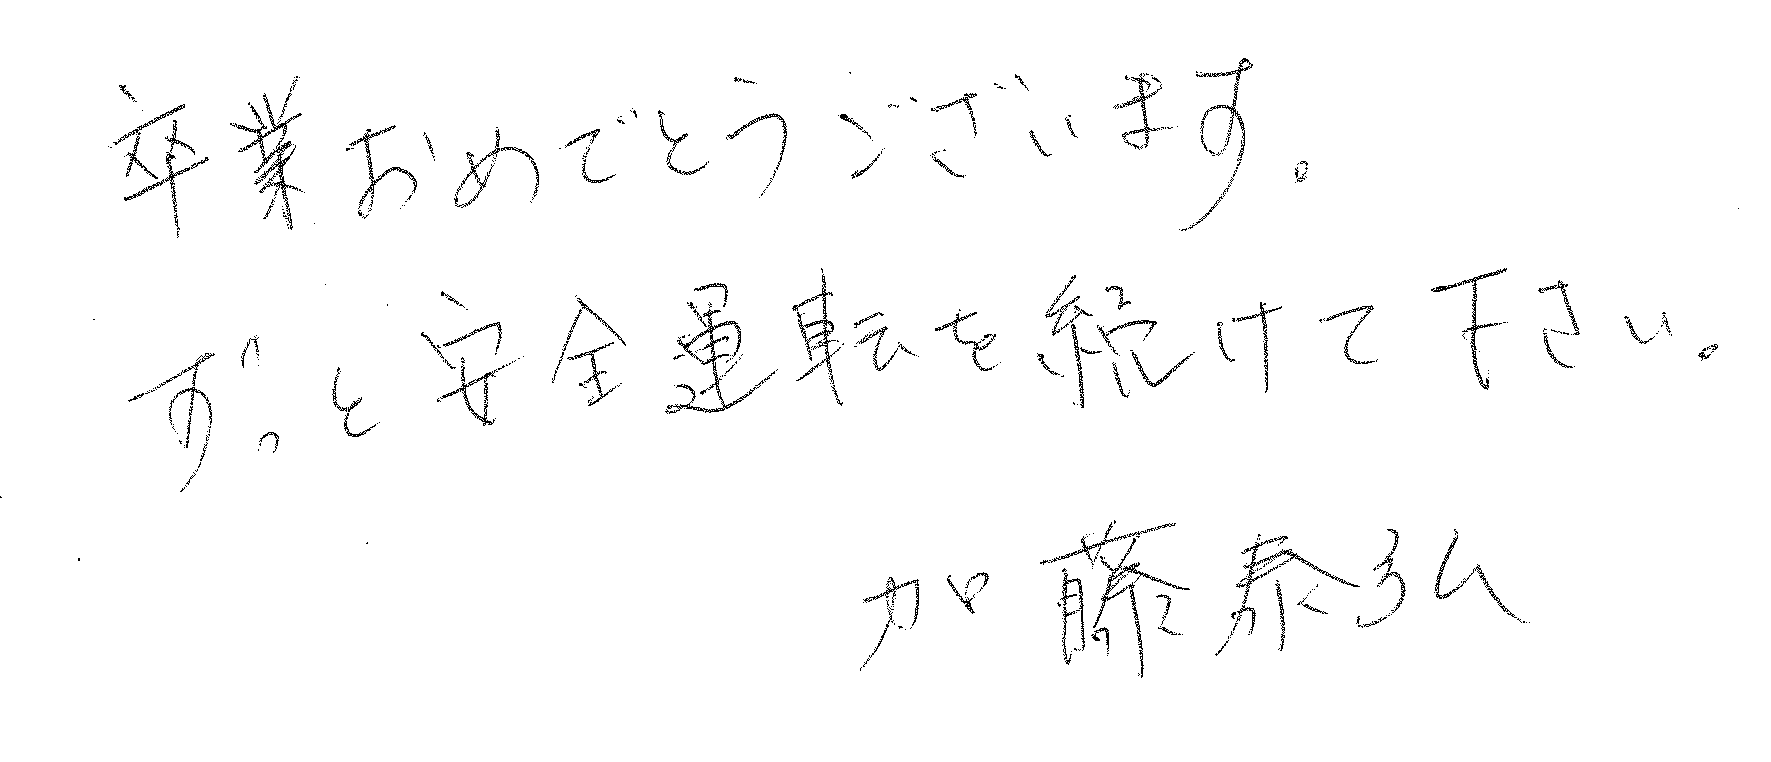 卒業おめでとうございます。
ずっと安全運転を続けて下さい。
加藤泰弘